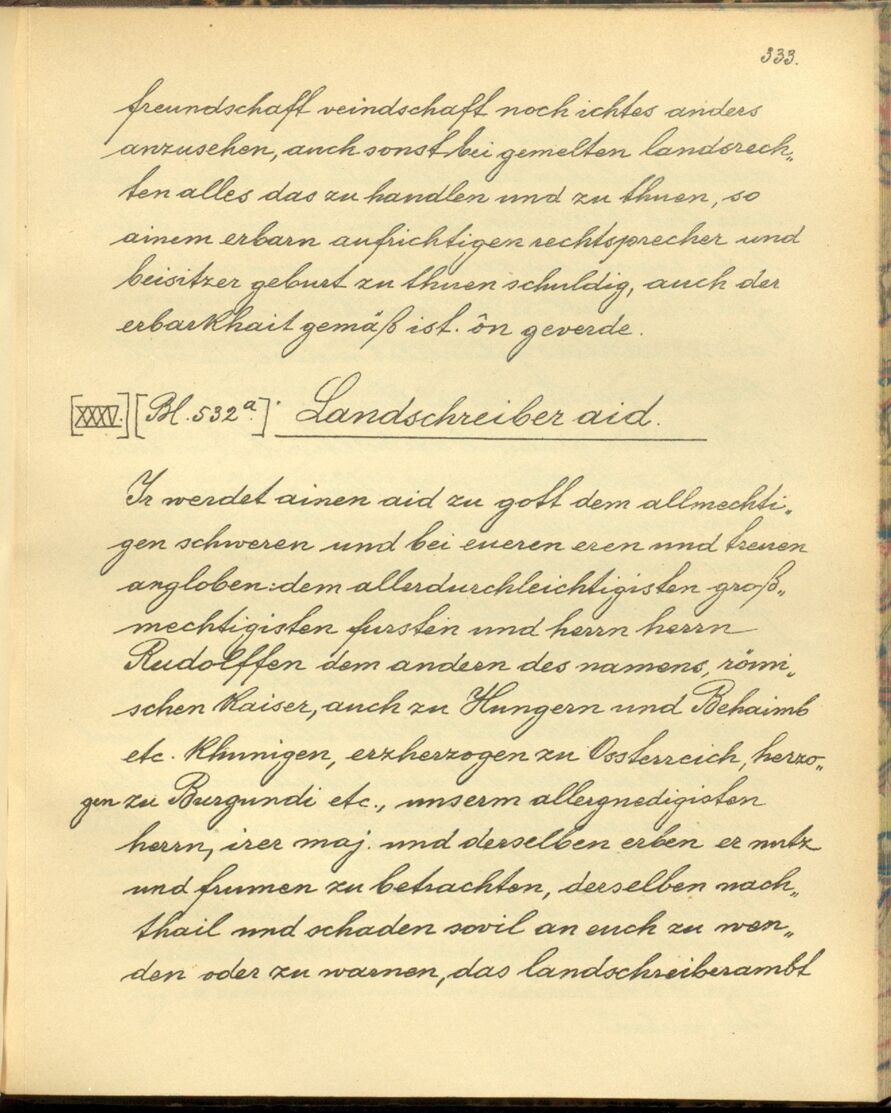 333.
freundschaft veindschaft noch ichtes anders
anzusehen, auch sonst bei gemelten landsrech„
ten alles das zu handlen und zu thuen, so
ainem erbarn aufrichtigen rechtsprecher und
beisitzer geburt zu thuen schuldig, auch der
erbarkhait gemäß ist. ôn geverde.
[XXXV.] [Bl. 532a.] Landschreiber aid.
Ir werdet ainen aid zu gott dem allmechti„
gen schweren und bei eueren eren und treuen
angloben: dem allerdurchleichtigisten groß„
mechtigisten fursten und herrn herrn
Rudolffen dem andern des namens, römi„
schen Kaiser, auch zu Hungern und Behaimb
etc. Khunigen, erzherzogen zu Ossterreich, herzo„
gen zu Burgundi etc., unserm allergnedigisten
herrn, irer maj. und derselben erben er nutz
und frumen zu betrachten, derselben nach„
thail und schaden sovil an euch zu wen„
den oder zu warnen, das landschreiberambt